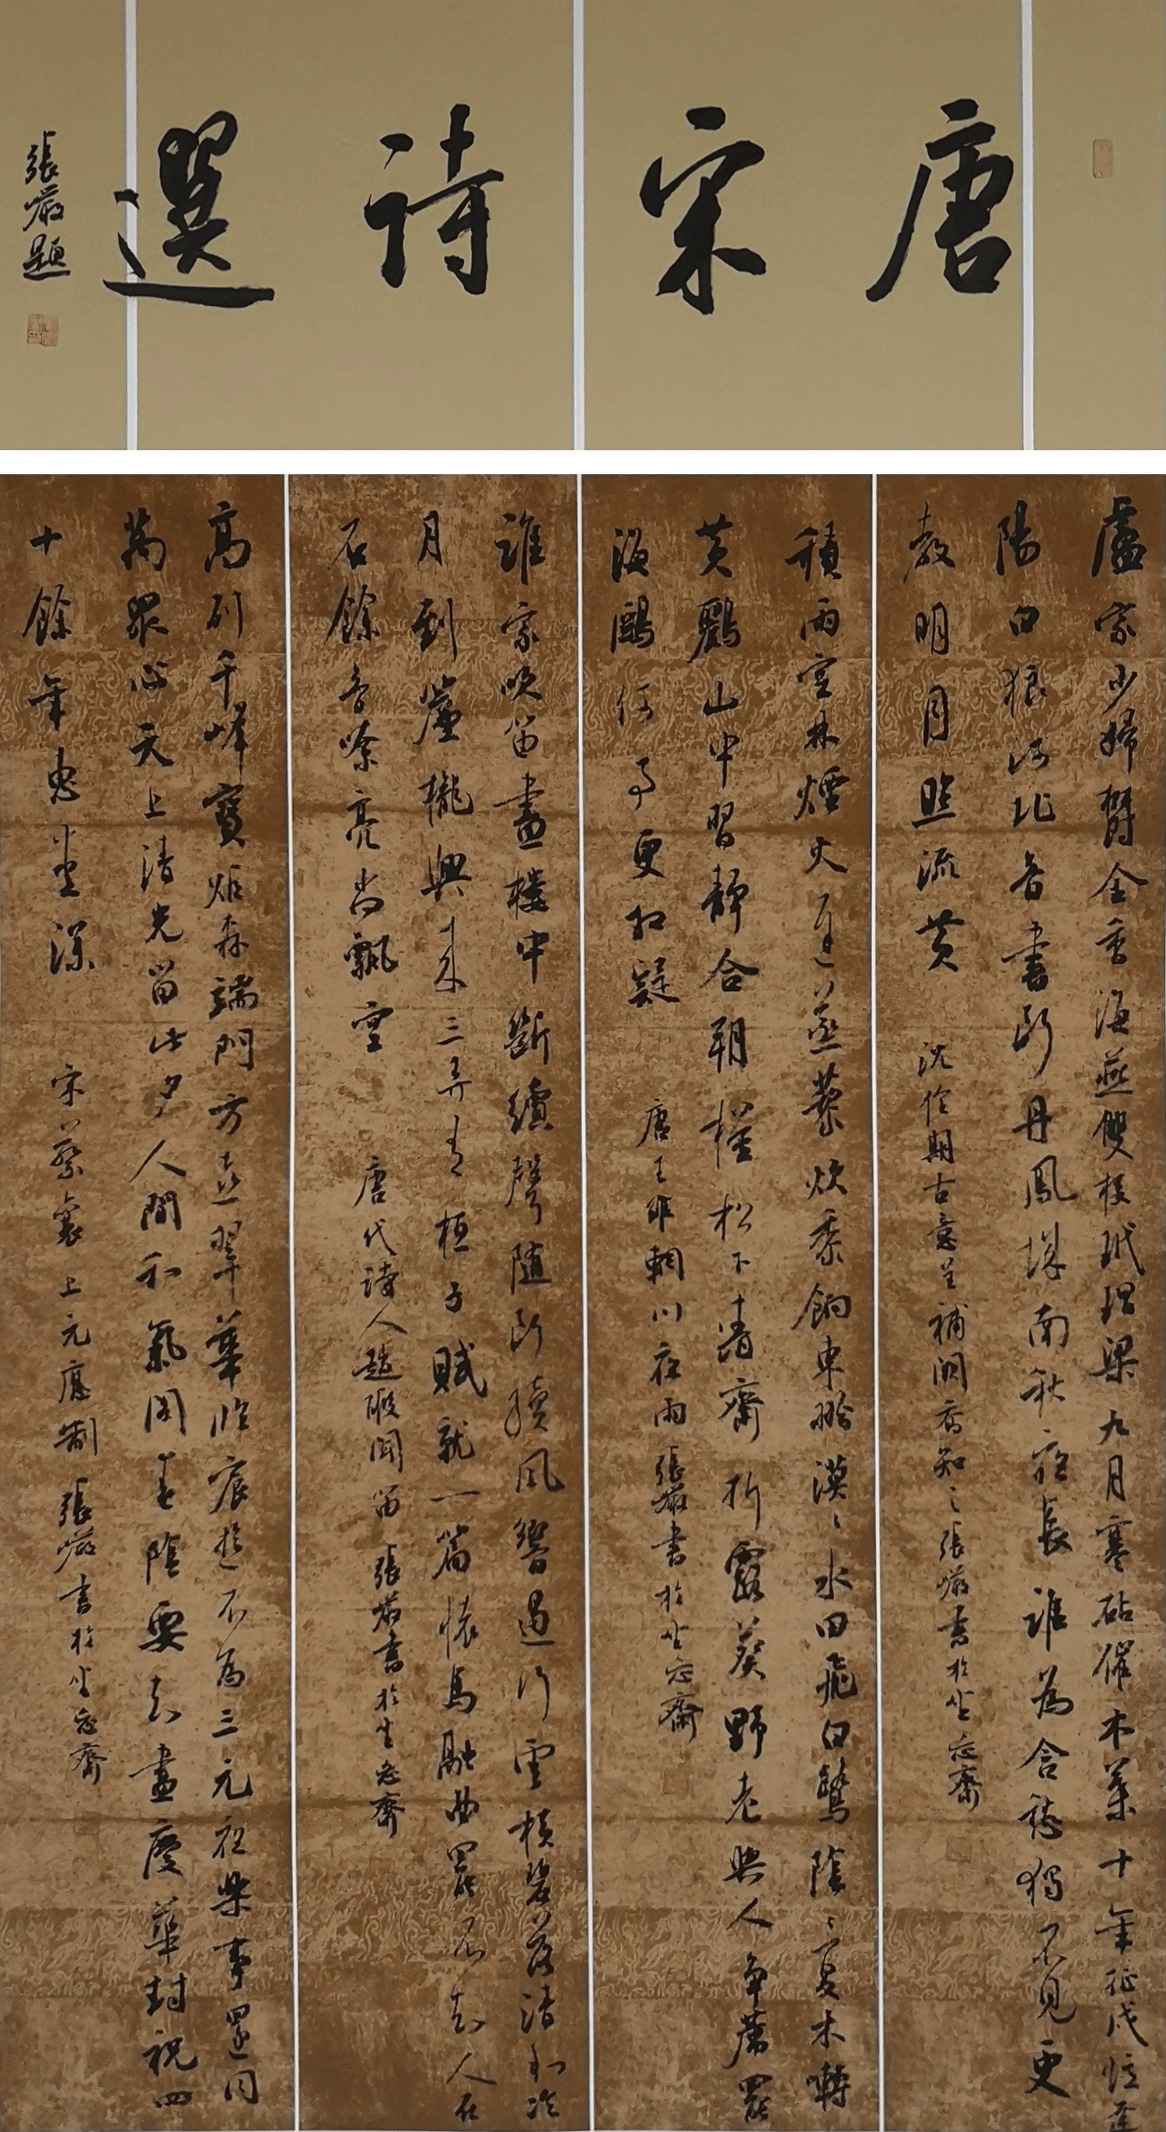 唐宋詩選
張嚴題
盧家少婦鬱金香海燕雙棲玳瑁梁九月寒砧催木葉十年征戍憶遼
陽白狼河北音書斷丹鳳城南秋夜長誰為含愁獨不見更
教明月照流黃
沈佺期古意呈補闕喬知之張嚴書於坐忘齋
積雨空林煙火遲蒸藜炊黍餉東菑漠漠水田飛白鷺陰陰夏木囀
黃鸝山中習靜合朝槿松下清齋折露葵野老與人爭席罷
海鷗何事更相疑
唐王維輞川夜雨張嚴書於坐忘齋
誰家吹笛畫樓中斷續聲隨斷續風響遏行雲橫碧落清和冷
月到簾櫳興來三弄有桓子賦就一篇懷馬融曲罷不知人在
否餘音嘹亮尚飄空
唐代詩人趙嘏聞笛張嚴書於坐忘齋
高列千峰寶炬森端門方喜翠華臨宸遊不為三元夜樂事還同
萬眾心天上清光留此夕人間和氣閣春陰要知盡慶華封祝四
十餘年惠愛深
宋蔡襄上元應制張嚴書於坐忘齋